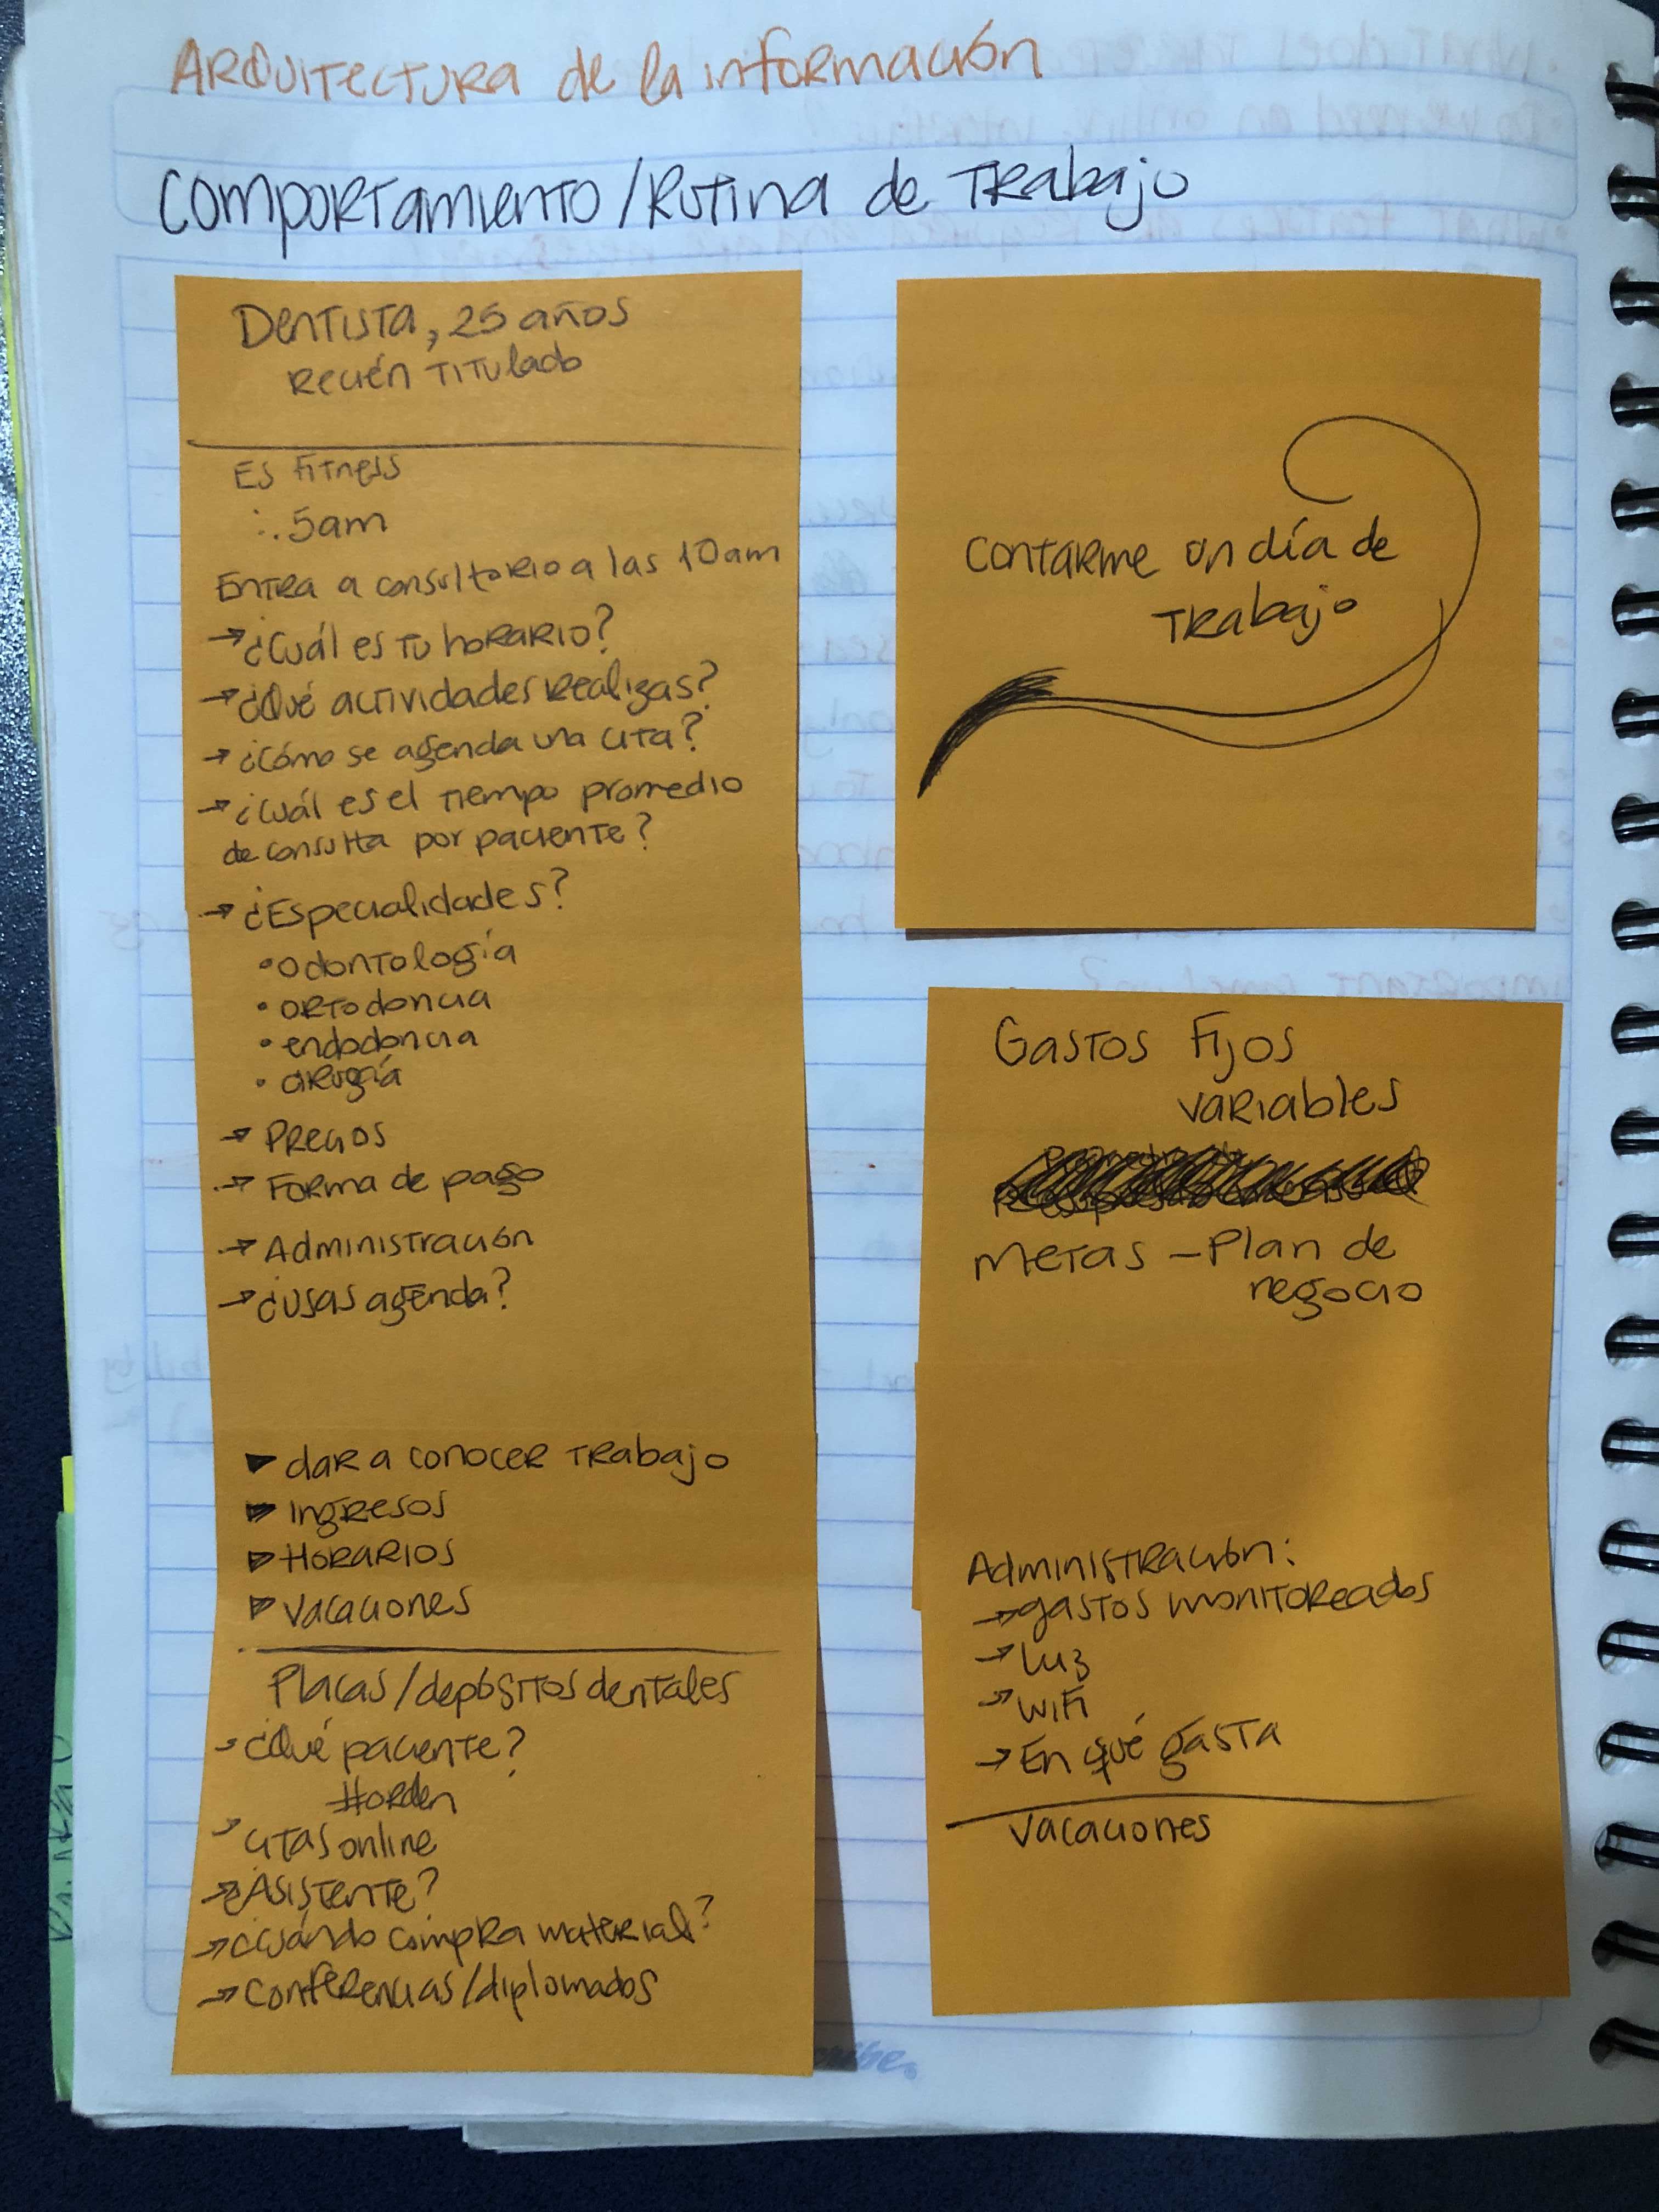 ARQUITECTURA de la información
COMPORTAMIENTO/RUTINA de TRabajo
DENTISTA, 25 años
RECIÉN TITULADO
ES FITNESS
∴ 5am
ENTRA a consultorio a las 10am
→ ¿Cuál es TU hORARIO?
→ ¿Qué actividades realizas?
→ ¿Cómo se agenda una cita?
→ ¿Cuál es el tiempo promedio
de consulta por paciente?
→ ¿Especialidades?
• Odontología
• ORTodoncia
• endodoncia
• cirugía
→ Precios
→ Forma de pago
→ Administración
→ ¿Usas agenda?
▶ dar a conocer Trabajo
▶ Ingresos
▶ HORARIOS
▶ vacaciones
Placas/depósitos dentales
→ ¿Qué paciente?
#orden
→ citas online
→ ¿Asistente?
→ ¿Cuándo compra material?
→ Conferencias/diplomados
CONTARME un día de
TRabajo
Gastos Fijos
variables
Metas - Plan de
negocio
Administración:
→ gastos monitoreados
→ Luz
→ WiFi
→ En qué gasta
Vacaciones